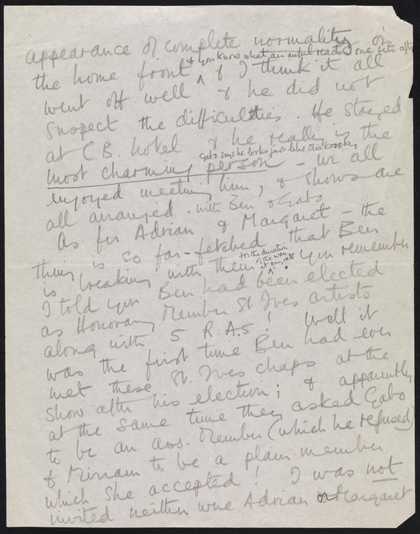 appearance of complete normality on
the home front & you know what an awful reaction one gets after
^ & I think it all
went off well & he did not
suspect the difficulties. He stayed
at C.B. hotel & he really is the
Gabo says he looks just like
most charming person – we all
enjoyed meeting him, & shows are
all arranged. with Ben & Gabo
As for Adrian & Margaret – the
thing is so far-fetched that Ben
is breaking with them for the duration of the war at any rate ^. You remember
I told you Ben had been elected
as Honorary Member St. Ives artists
along with 5 R.A.s! Well it
was the first time Ben had ever
met these St. Ives chaps at the
show after his election; & apparently
at the same time they asked Gabo
to be an ass. Member (which he refused)
& Miriam to be a plain member
which she accepted! I was not
invited neither were Adrian or Margaret